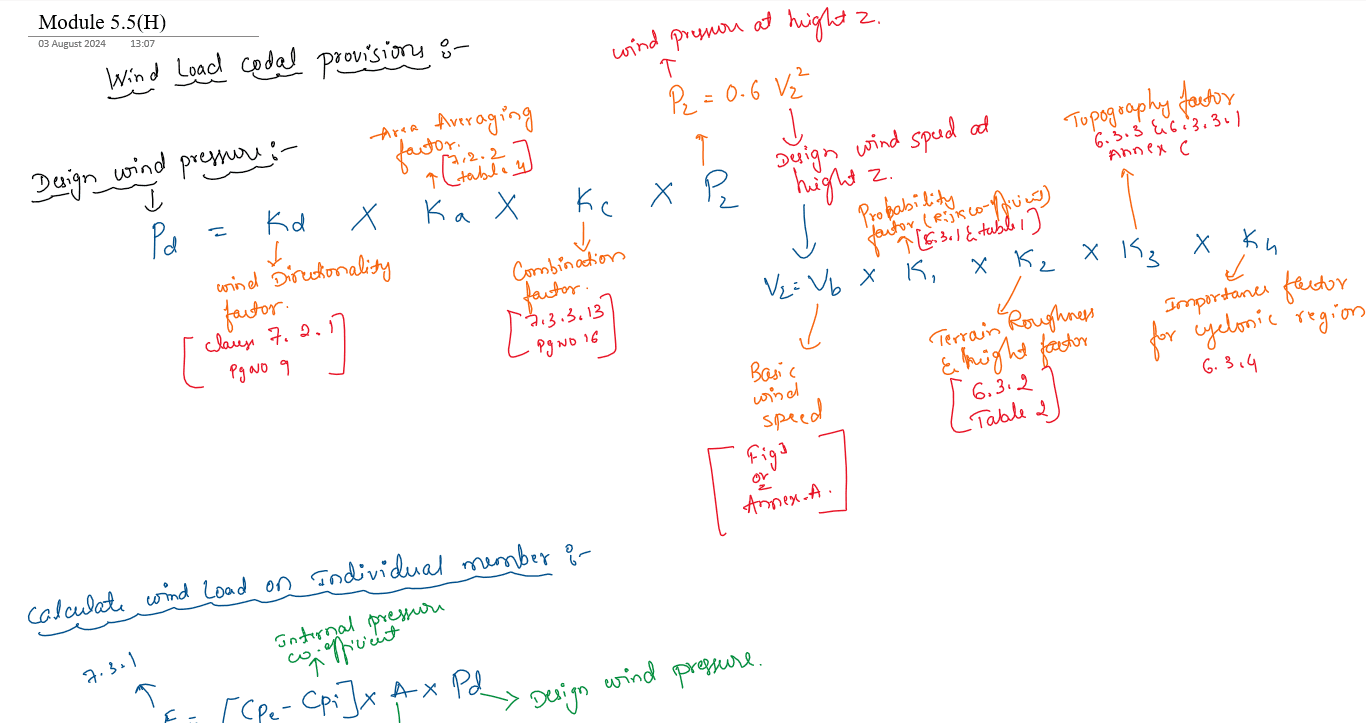 Module 5.5(H)
03 August 2024 13:07
Wind Load codal provisions :-
wind pressure at hight Z.
Pz = 0.6 Vz²
Design wind speed at
hight Z.
Design wind pressure:-
Area Averaging
factor.
[7.2.2
table 4]
Pd = Kd X Ka X Kc X Pz
wind Directionality
factor.
[clause 7.2.1
Pg NO 9]
Combination
factor.
[7.3.3.13
Pg NO 16]
Topography factor
6.3.3 & 6.3.3.1
Annex C
Probability
factor (Risk co-efficient)
[6.3.1 & table 1]
Vz = Vb x K1 x K2 x K3 x K4
Basic
wind
speed
[Fig 1
or
Annex-A.]
Terrain Roughness
& hight factor
[6.3.2
Table 2]
Importance factor
for cyclonic region
6.3.4
Calculate wind Load on Individual member :-
Internal pressure
co-efficient
7.3.1
F = [Cpe - Cpi] x A x Pd → Design wind pressure.